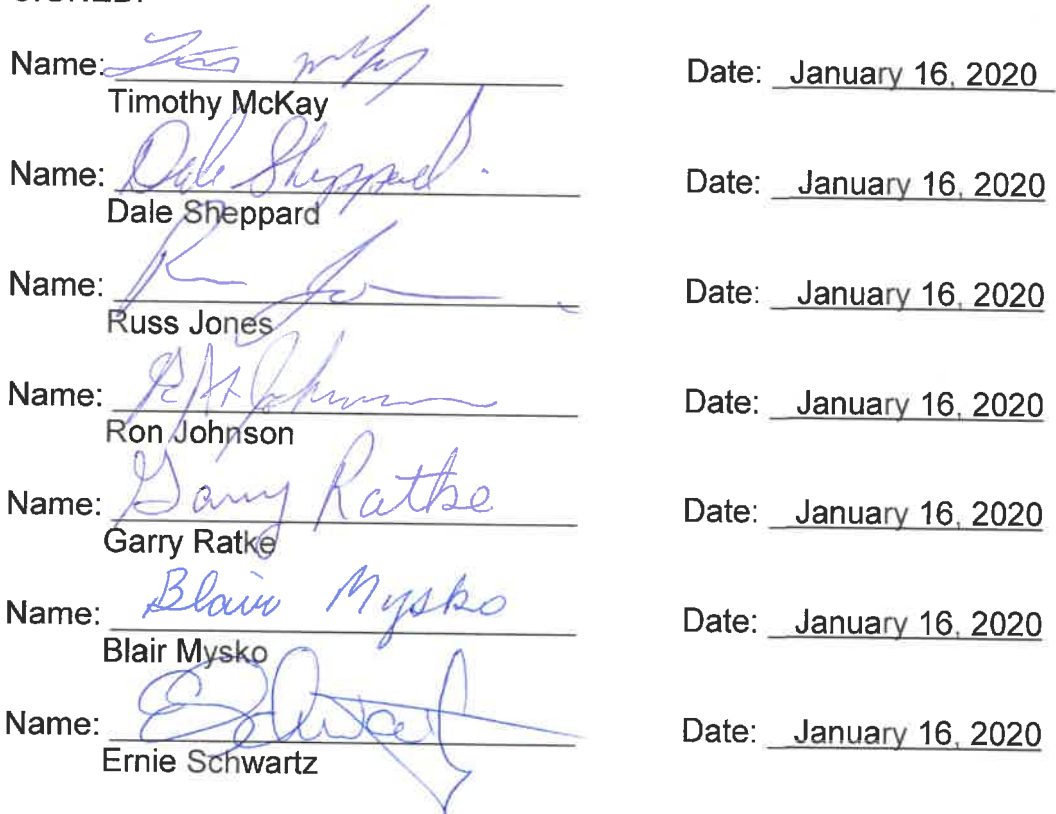 Name: Tim McKay Date: January 16, 2020
Timothy McKay
Name: Dale Sheppard. Date: January 16, 2020
Dale Sheppard
Name: Date: January 16, 2020
Russ Jones
Name: Date: January 16, 2020
Ron Johnson
Name: Garry Ratke Date: January 16, 2020
Garry Ratke
Name: Blair Mysko Date: January 16, 2020
Blair Mysko
Name: Date: January 16, 2020
Ernie Schwartz